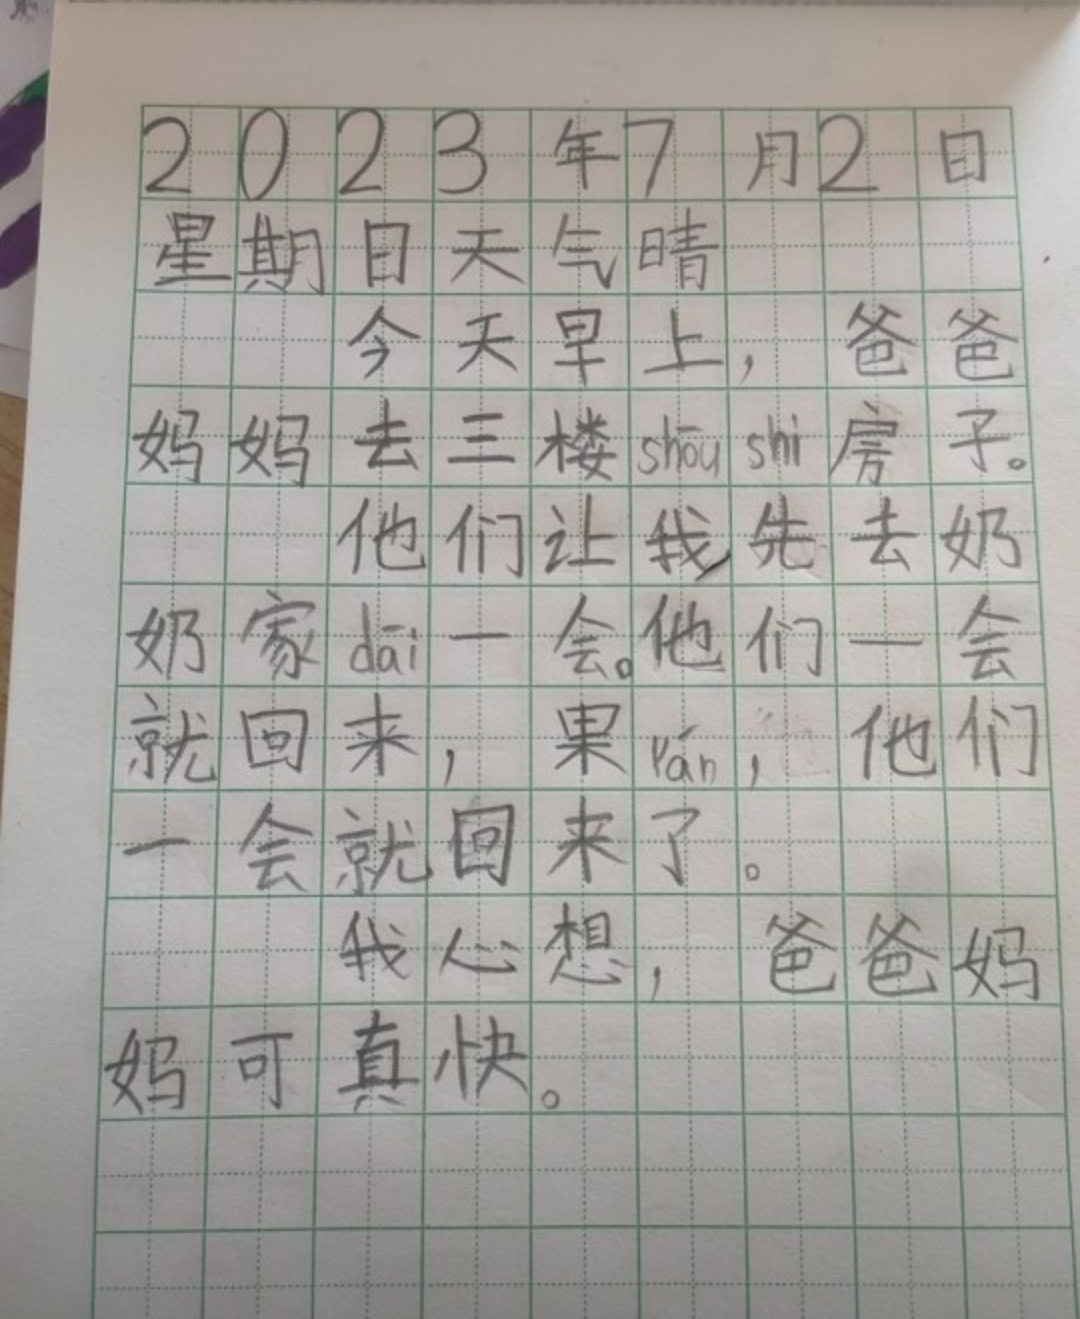 2023年7月2日
星期日天气晴
今天早上，爸爸
妈妈去三楼shōu shi房子。
他们让我先去奶
奶家dāi一会。他们一会
就回来，果rán，他们
一会就回来了。
我心想，爸爸妈
妈可真快。